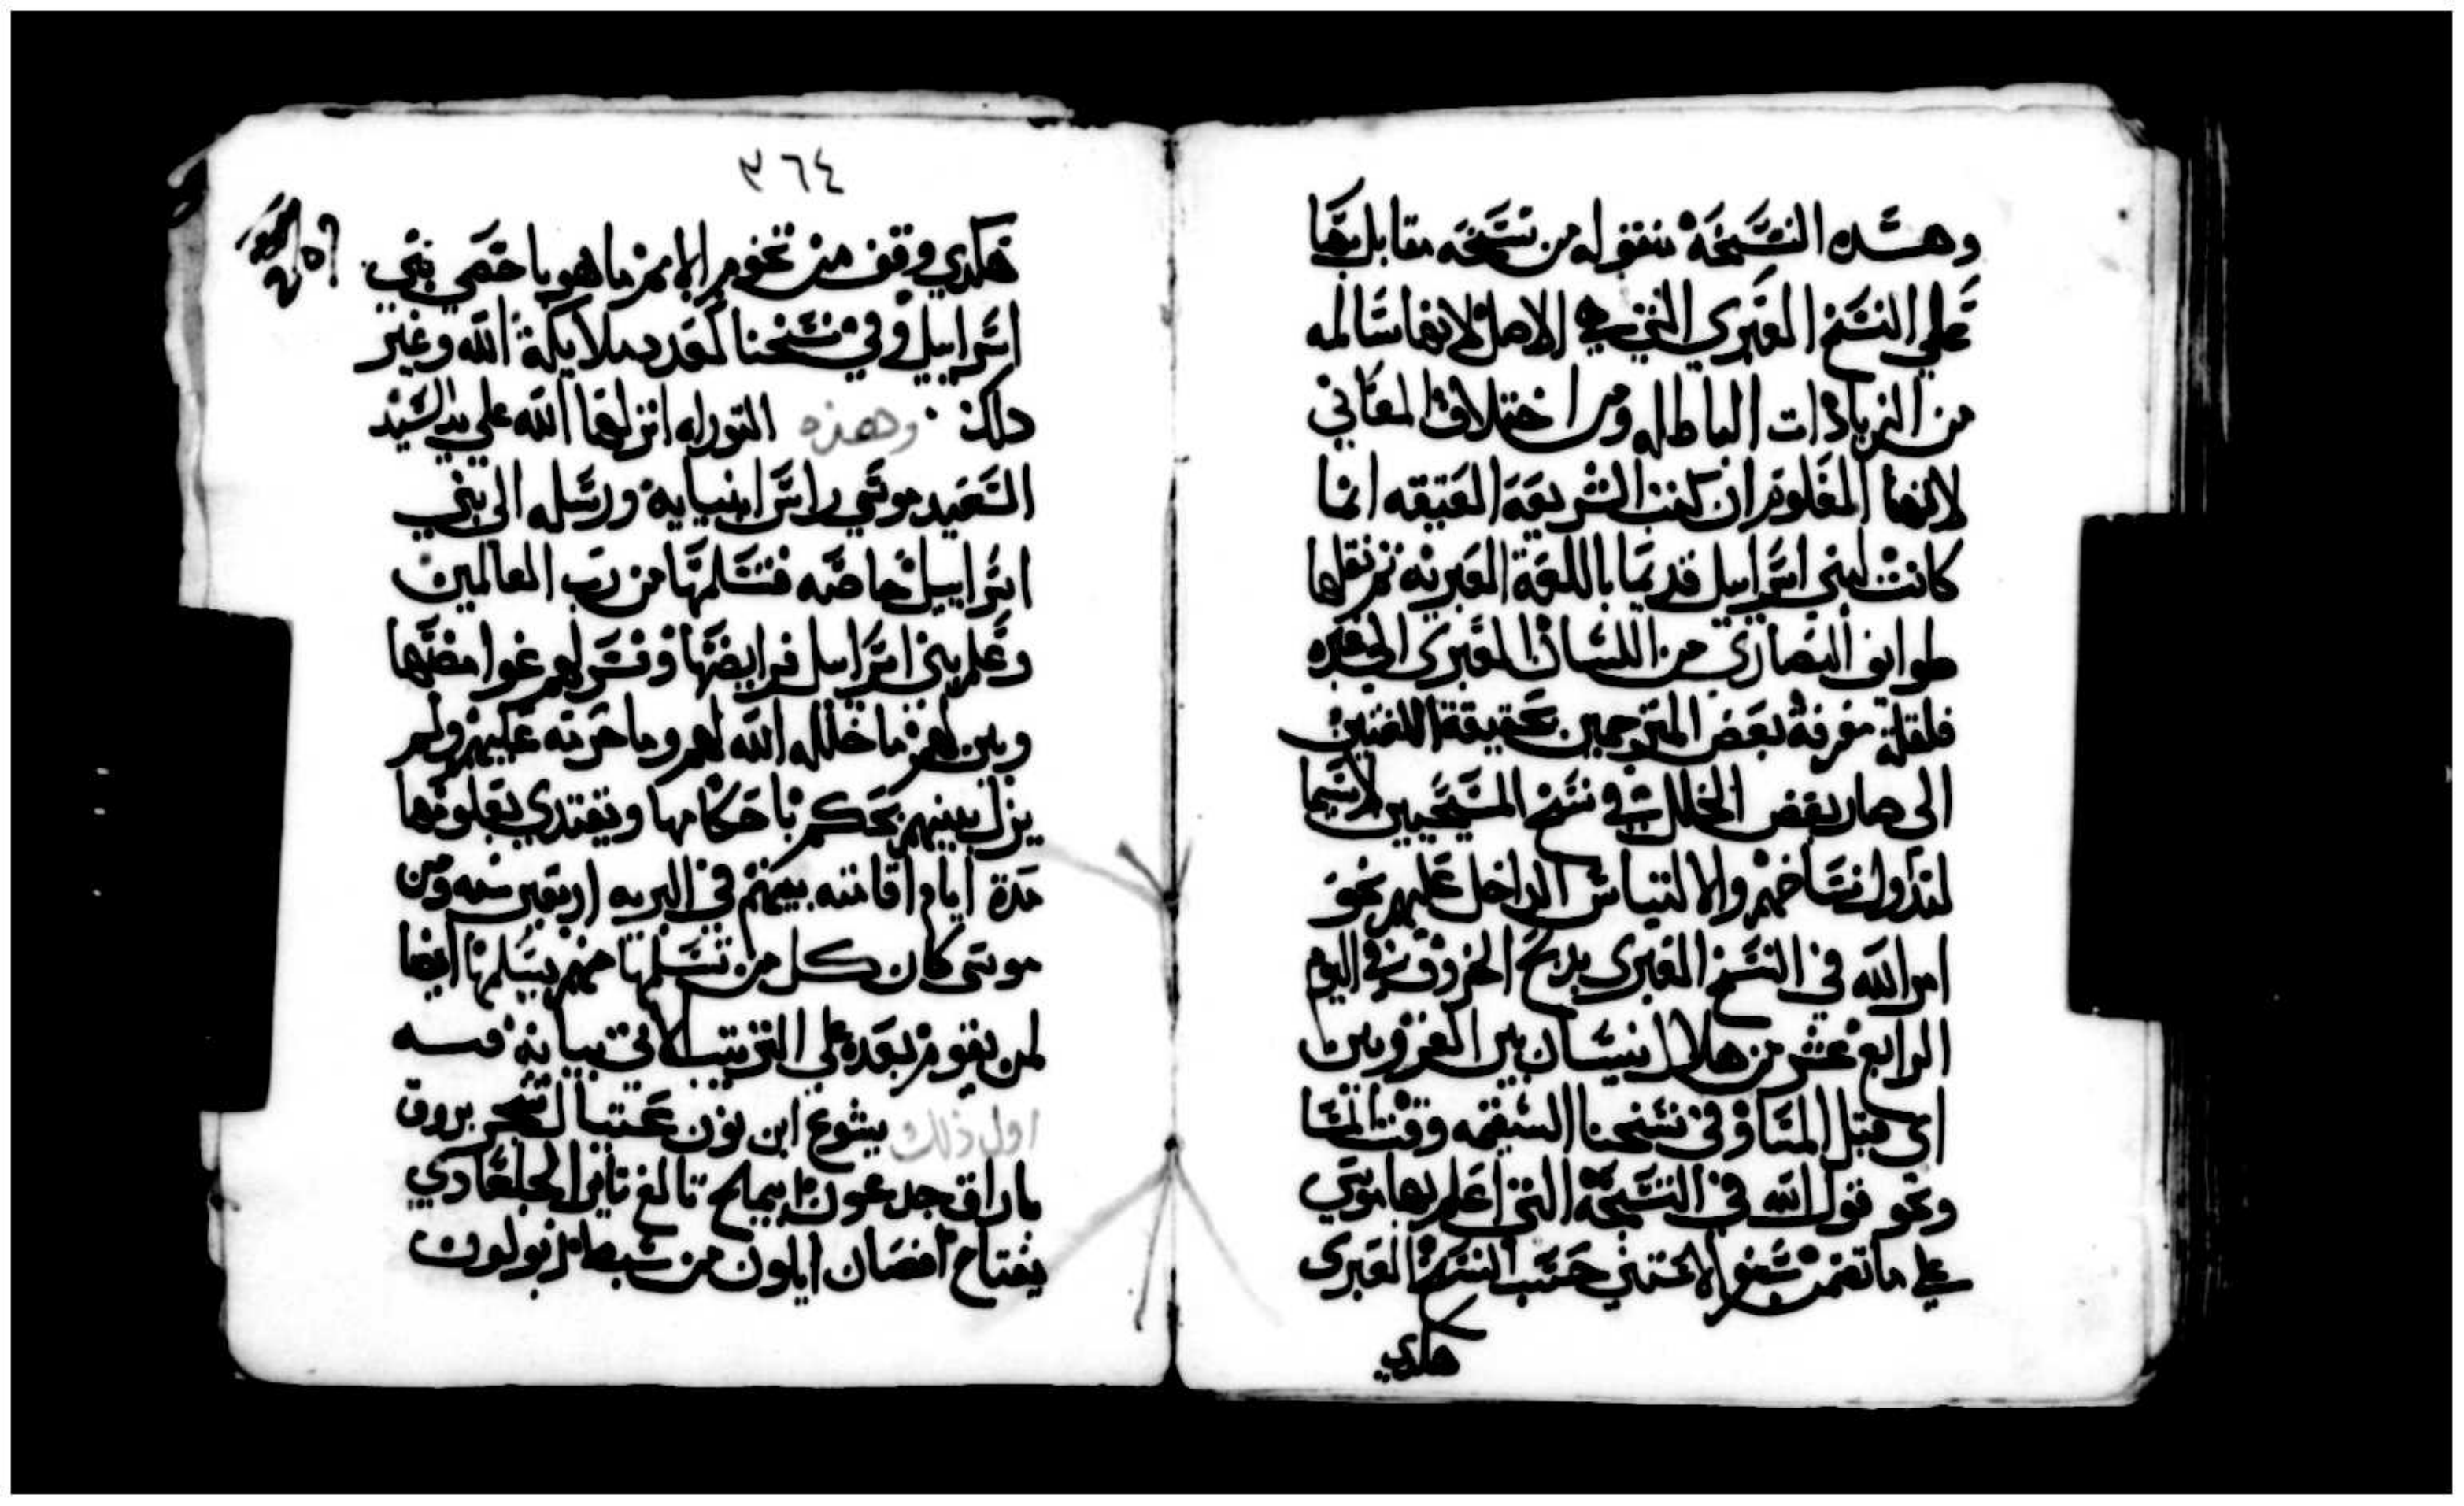 وهده النسخة منقوله من نسخه مقابل بها
علي النسخ العبري التي هي الاصل لانها سالمه
من الزيادات الباطله ومن اختلاف المعاني
لانها المعلوم ان كتب الشريعة العتيقه انما
كانت لبني اسراييل قديما باللغة العبرية ثم نقلها
طوايف النصاري من اللسان العبري الي غيره
فلقلة معرفة بعض المترجمين بحقيقة اللغتين
الي صار بعض الخلل في نسخ المسيحيين لاسيما
لتداول نساخهم والالتباس الداخل عليهم نحو
امر الله في النسخ العبري بدبح الخروف في اليوم
الرابع عشر من هلال نيسان بين الغروبين
اي قبل المسا وفي نسخنا السقيمه وقت المسا
ونحو قول الله في النسخة التي اعلم بها موسي
علي ما تضمن سفر الاحتمي حسب النسخ العبري
هكدي
٣٦٤
هكدي وقف من تخوم الامم ما هو باحصي بني
اسراييل وفي نسخنا كعدد ملايكة الله وغير
دلك وهذه التوراه انزلها الله علي يد السيد
السعيد موسي راس انبيايه ورسله الي بني
اسراييل خاصه فتسلمها من رب العالمين
وعلم بني اسراييل فرايضها وفسر لهم غوامضها
وبين لهم ما حلله الله لهم وما حرمه عليهم ولم
يزل بينهم يحكم باحكامها ويقتدي بعلومها
مدة ايام اقامته بينهم في البريه اربعين سنه ومن
موسى كان كل من تسلمها منهم يسلمها ايضا
لمن يقوم بعده علي الترتيب الاتي بيانه فسه
اول ذلك يشوع ابن نون عتنيال شمجر بروق
باراق جدعون ابيملح تالغ ناير الجلعادي
يفتاح افصان ايلون من سبط زبولون